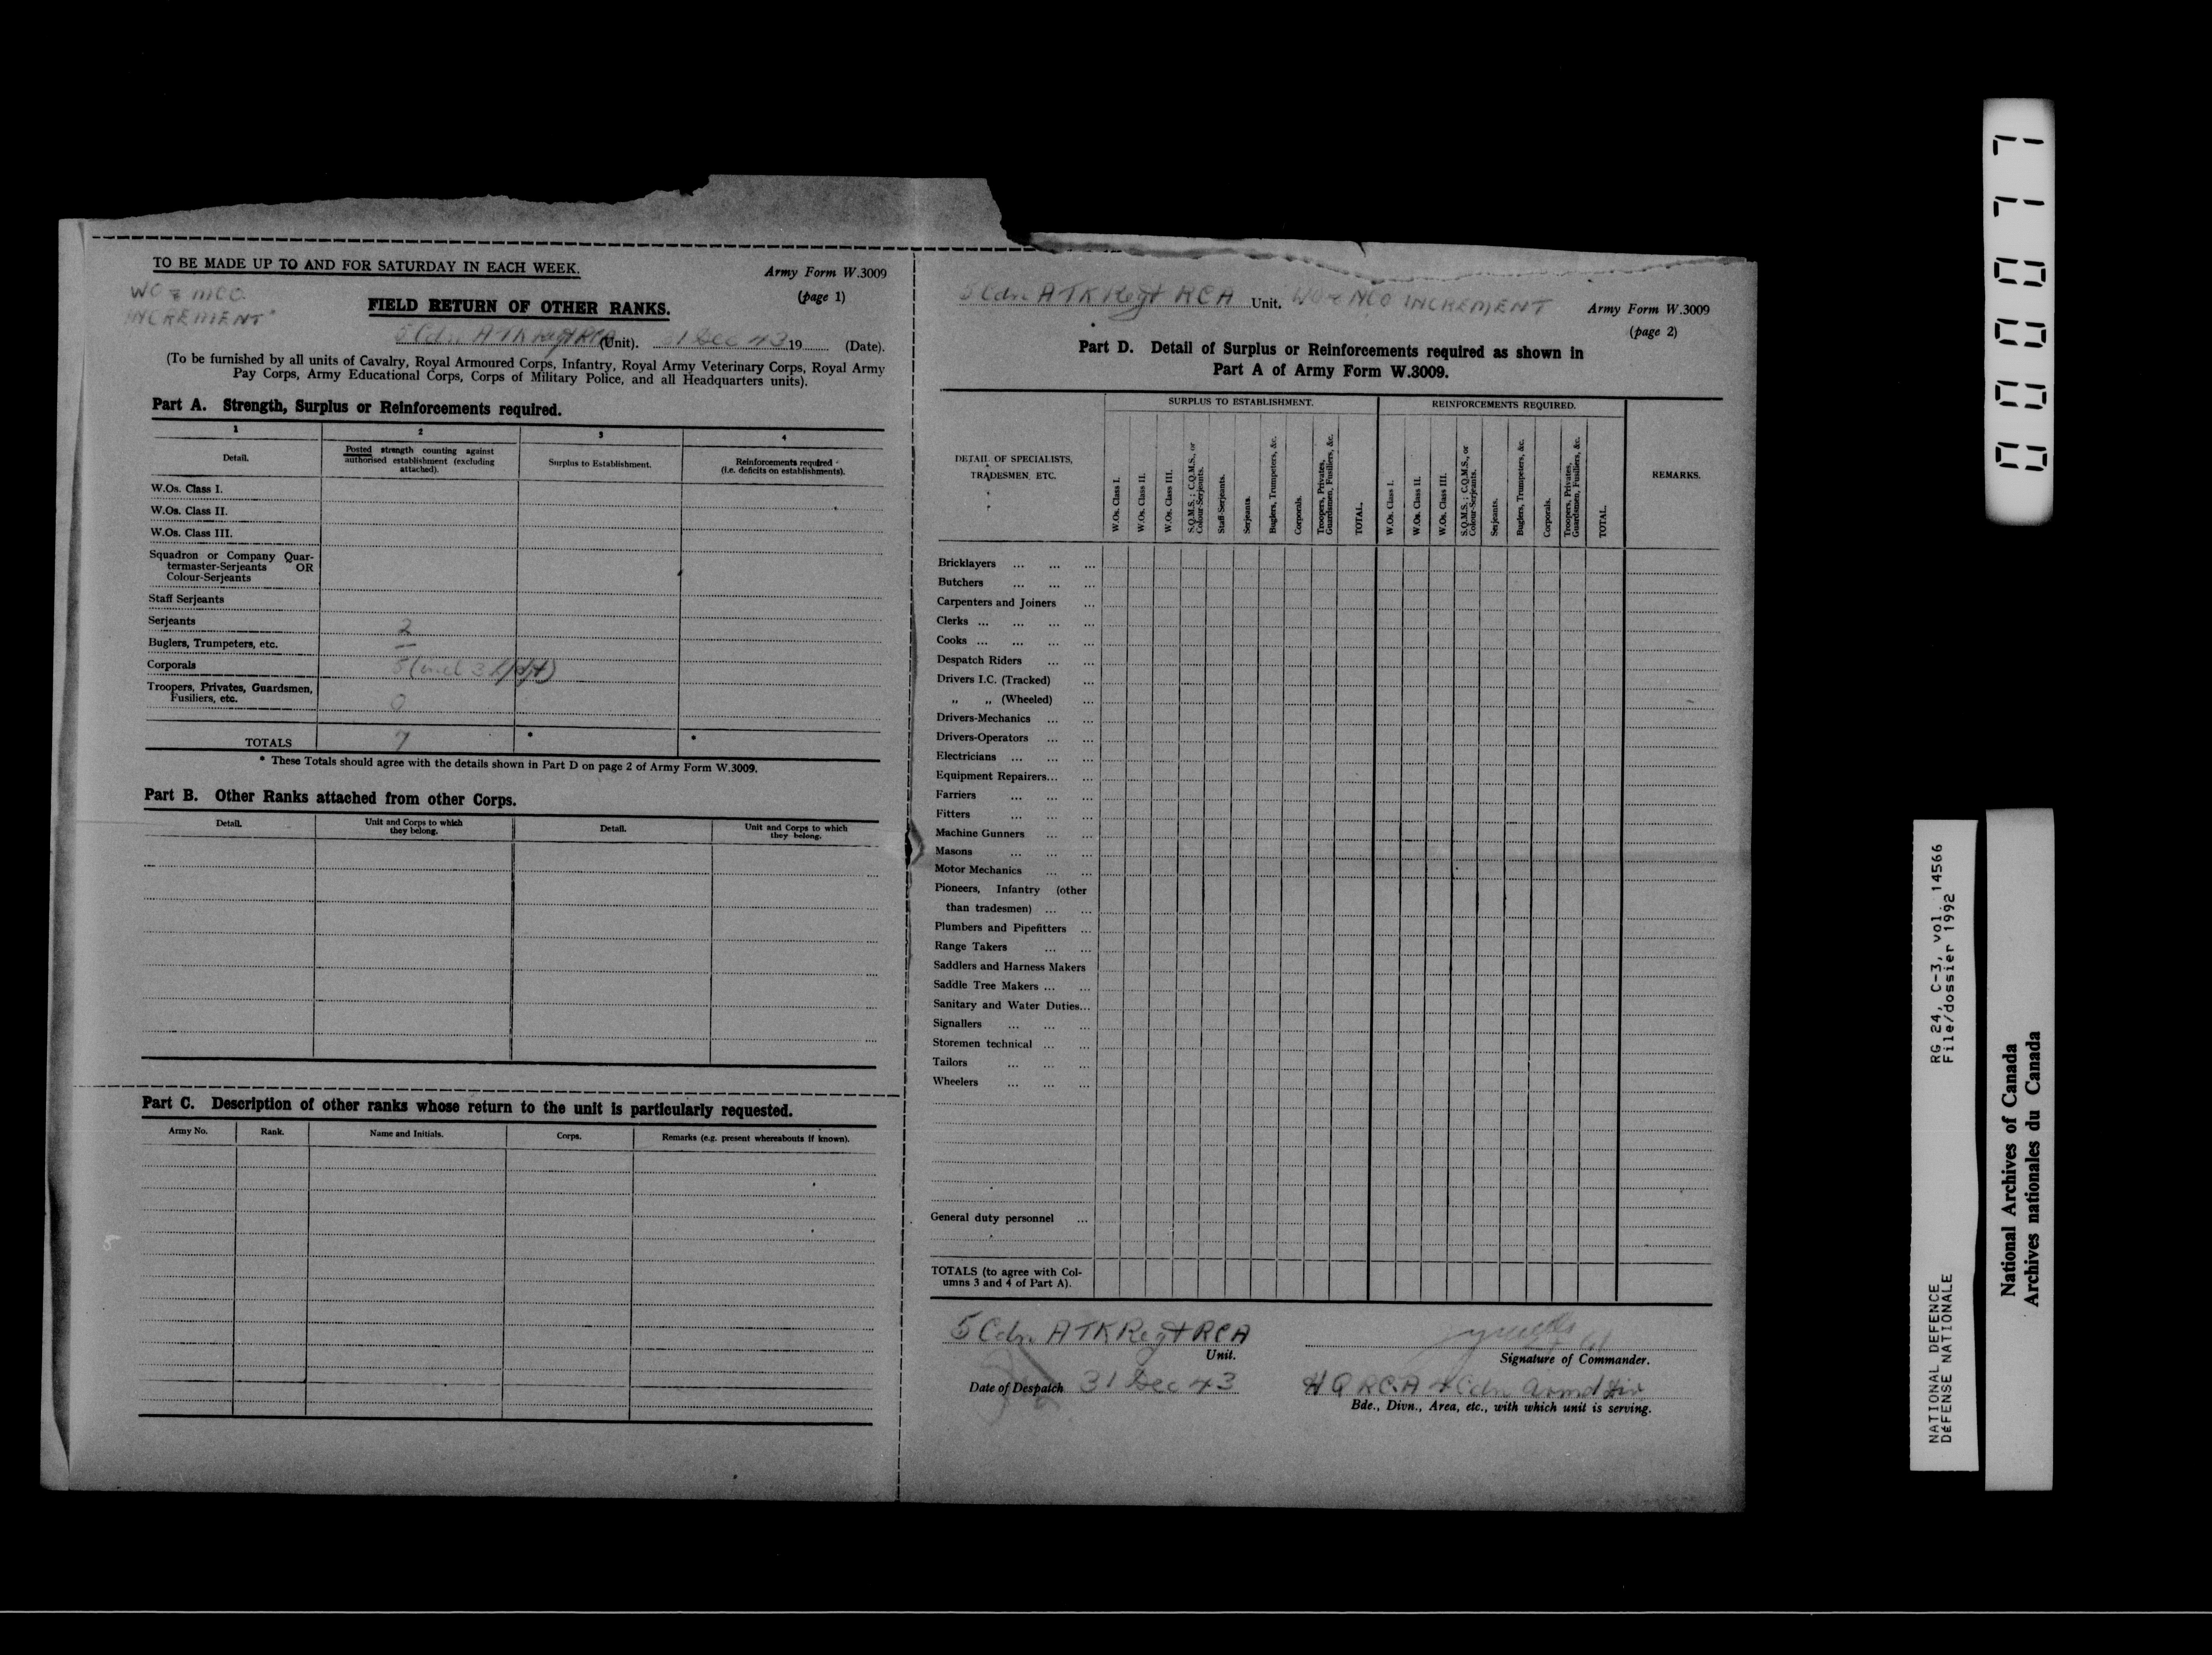 TO BE MADE UP TO AND FOR SATURDAY IN EACH WEEK.
Army Form W.3009
(page 1)
WO & NCO
INCREMENT
FIELD RETURN OF OTHER RANKS.
5 Cdn ATK Regt RCA (Unit). 31 Dec 43 19 (Date).
(To be furnished by all units of Cavalry, Royal Armoured Corps, Infantry, Royal Army Veterinary Corps, Royal Army
Pay Corps, Army Educational Corps, Corps of Military Police, and all Headquarters units).
Part A. Strength, Surplus or Reinforcements required.
1 2 3 4
Detail. Posted strength counting against authorised establishment (excluding attached). Surplus to Establishment. Reinforcements required (i.e. deficits on establishments).
W.Os. Class I.
W.Os. Class II.
W.Os. Class III.
Squadron or Company Quar-
termaster-Serjeants OR
Colour-Serjeants
Staff Serjeants
Serjeants 2
Buglers, Trumpeters, etc. —
Corporals 5 (incl 3 )
Troopers, Privates, Guardsmen,
Fusiliers, etc. 0
TOTALS 7 * *
* These Totals should agree with the details shown in Part D on page 2 of Army Form W.3009.
Part B. Other Ranks attached from other Corps.
Detail. Unit and Corps to which they belong. Detail. Unit and Corps to which they belong.
Part C. Description of other ranks whose return to the unit is particularly requested.
Army No. Rank. Name and Initials. Corps. Remarks (e.g. present whereabouts if known).
5 Cdn ATK Regt RCA Unit. WO & NCO INCREMENT
Army Form W.3009
(page 2)
Part D. Detail of Surplus or Reinforcements required as shown in
Part A of Army Form W.3009.
SURPLUS TO ESTABLISHMENT. REINFORCEMENTS REQUIRED.
DETAIL OF SPECIALISTS,
TRADESMEN, ETC.
W.Os. Class I.
W.Os. Class II.
W.Os. Class III.
S.Q.M.S.; C.Q.M.S., or Colour-Serjeants.
Staff-Serjeants.
Serjeants.
Buglers, Trumpeters, &c.
Corporals.
Troopers, Privates, Guardsmen, Fusiliers, &c.
TOTAL.
W.Os. Class I.
W.Os. Class II.
W.Os. Class III.
S.Q.M.S.; C.Q.M.S., or Colour-Serjeants.
Serjeants.
Buglers, Trumpeters, &c.
Corporals.
Troopers, Privates, Guardsmen, Fusiliers, &c.
TOTAL.
REMARKS.
Bricklayers ... ... ...
Butchers ... ... ...
Carpenters and Joiners ...
Clerks ... ... ... ...
Cooks ... ... ... ...
Despatch Riders ... ...
Drivers I.C. (Tracked) ...
„ „ (Wheeled) ...
Drivers-Mechanics ... ...
Drivers-Operators ... ...
Electricians ... ... ...
Equipment Repairers... ...
Farriers ... ... ...
Fitters ... ... ...
Machine Gunners ... ...
Masons ... ... ...
Motor Mechanics ... ...
Pioneers, Infantry (other
than tradesmen) ... ...
Plumbers and Pipefitters ...
Range Takers ... ...
Saddlers and Harness Makers
Saddle Tree Makers ... ...
Sanitary and Water Duties...
Signallers ... ... ...
Storemen technical ... ...
Tailors ... ... ...
Wheelers ... ... ...
General duty personnel ...
TOTALS (to agree with Col-
umns 3 and 4 of Part A).
5 Cdn ATK Regt RCA
Unit.
Signature of Commander.
Date of Despatch 31 Dec 43
HQ RCA 4 Cdn Armd Div
Bde., Divn., Area, etc., with which unit is serving.
000077
RG 24, C-3, vol. 14566
File/dossier 1992
NATIONAL DEFENCE
DÉFENSE NATIONALE
National Archives of Canada
Archives nationales du Canada